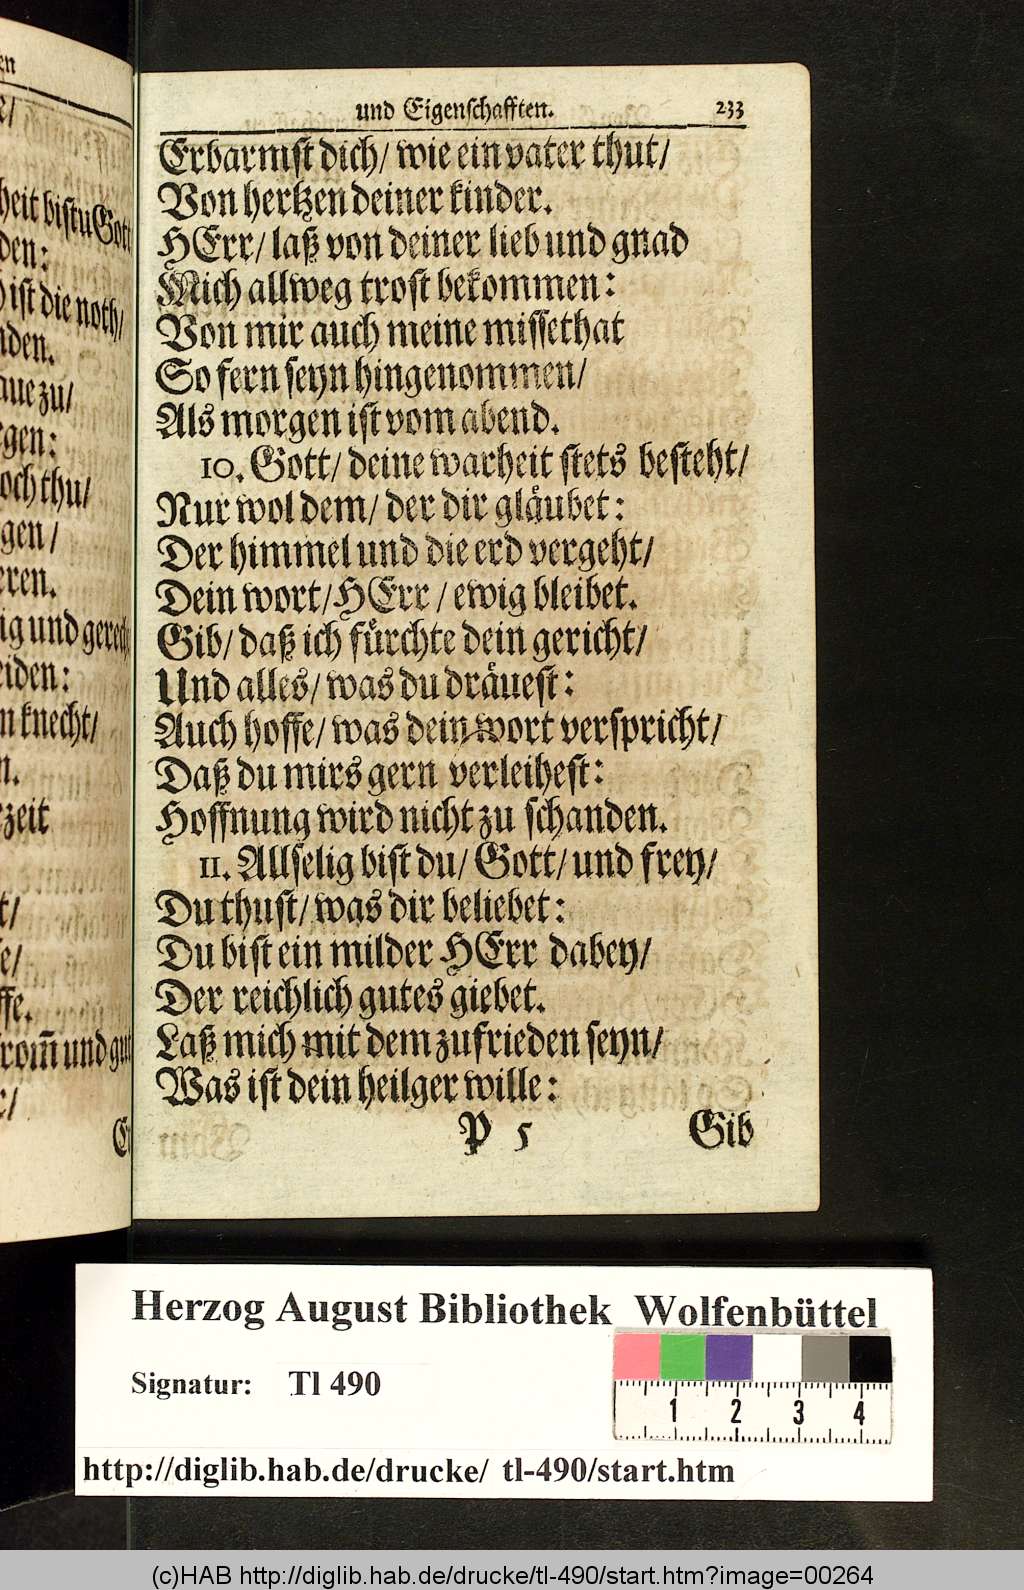 und Eigenschafften. 233
Erbarmst dich/ wie ein vater thut/
Von hertzen deiner kinder.
HErr/ laß von deiner lieb und gnad
Mich allweg trost bekommen:
Von mir auch meine missethat
So fern seyn hingenommen/
Als morgen ist vom abend.
10. Gott/ deine warheit stets besteht/
Nur wol dem/ der dir gläubet:
Der himmel und die erd vergeht/
Dein wort/ HErr/ ewig bleibet.
Gib/ daß ich fürchte dein gericht/
Und alles/ was du dräuest:
Auch hoffe/ was dein wort verspricht/
Daß du mirs gern verleihest:
Hoffnung wird nicht zu schanden.
11. Allselig bist du/ Gott/ und frey/
Du thust/ was dir beliebet:
Du bist ein milder HErr dabey/
Der reichlich gutes giebet.
Laß mich mit dem zufrieden seyn/
Was ist dein heilger wille:
P 5 Gib
heit bistu Gott
den:
ist die noth/
nden.
aue zu/
gen:
och thu/
gen/
eren.
ig und gerech
eiden:
n knecht/
n.
zeit
t/
e/
ffe.
rom̃ und gut
Herzog August Bibliothek Wolfenbüttel
Signatur: Tl 490
1 2 3 4
http://diglib.hab.de/drucke/ tl-490/start.htm
(c)HAB http://diglib.hab.de/drucke/tl-490/start.htm?image=00264